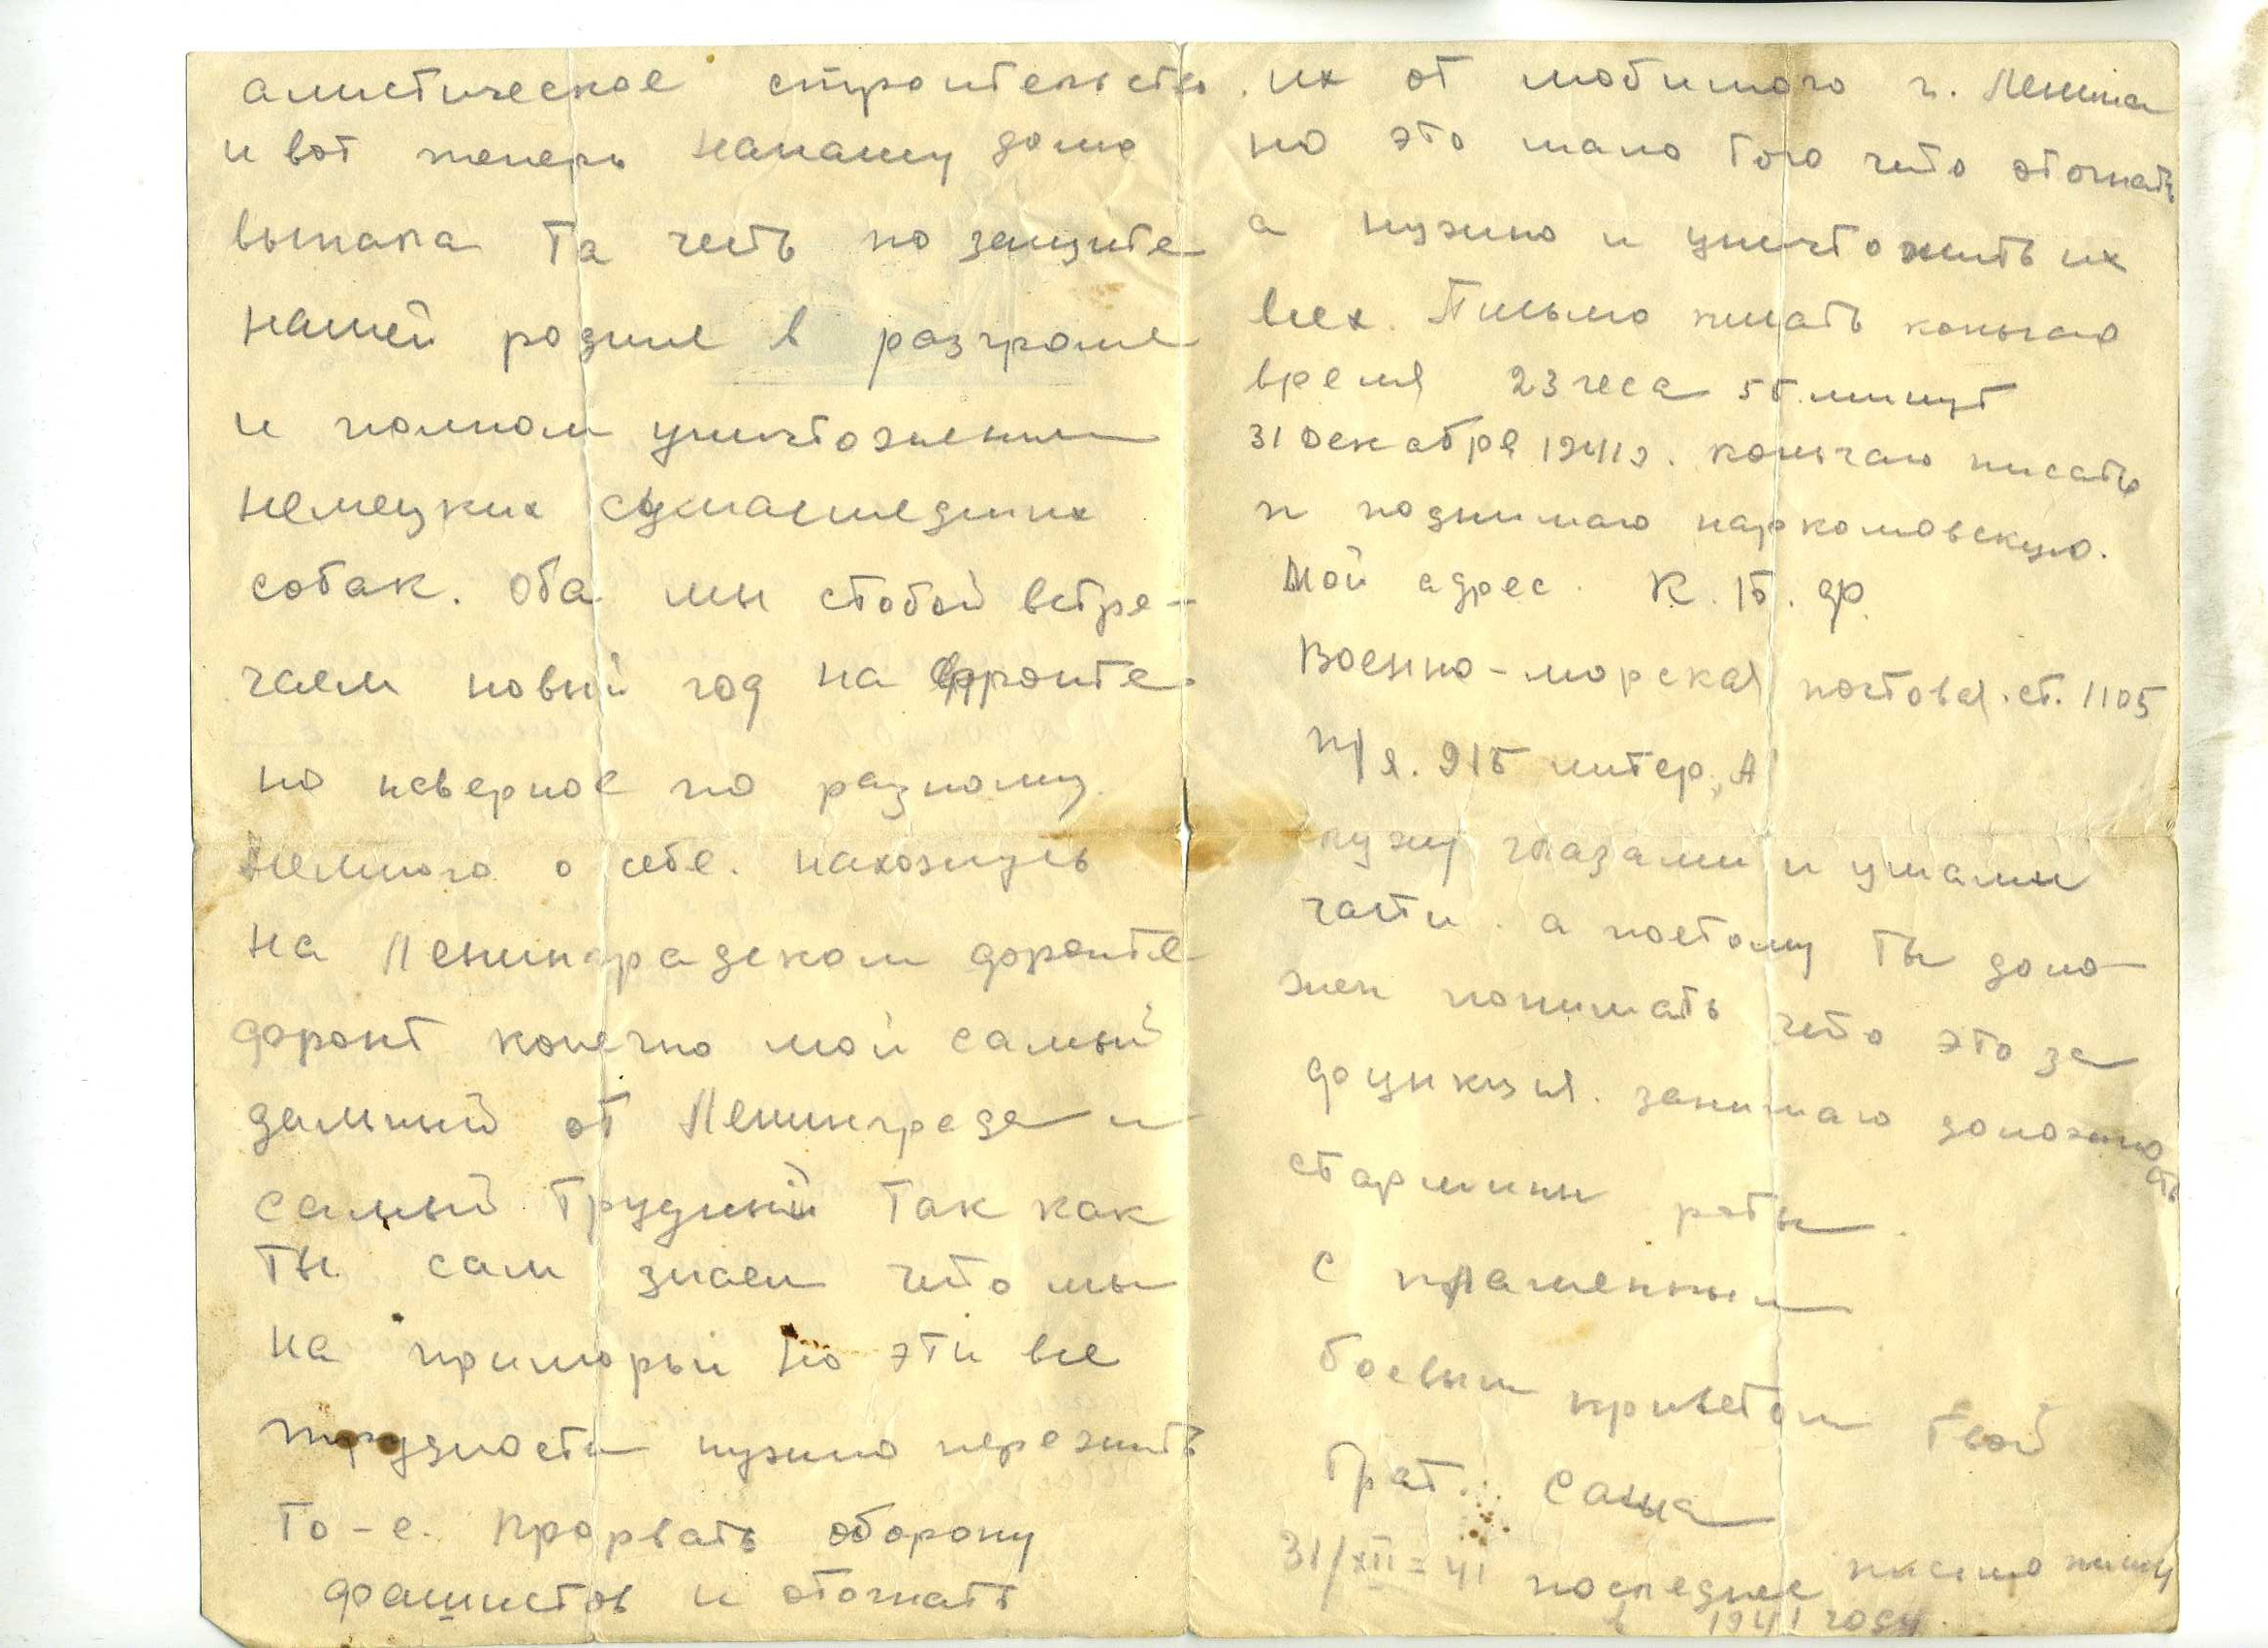 алистическое строительство
и вот теперь нанашу долю
выпала та честь по защите
нашей родине в разгроме
и полном уничтожении
немецких сумасшедших
собак. Оба мы стобой встре-
чаем новый год на фронте.
но неверное по разному
немного о себе. нахожусь
на Ленинградском фронте
фронт конечно мой самый
дальный от Ленинграда и
самый трудный так как
ты сам знаеш что мы
на приморьи но эти все
трудности нужно пережить
то-е. прорвать оборону
фашистов и отогнать
их от любимого г. Ленина
но это мало того что отогнать
а нужно и уничтожить их
всех. Письмо писать кончаю
время 23 часа 55 минут
31 декабря 1941 г. кончаю писать
и поднимаю наркомовскую.
Мой адрес. К. Б. ф.
Военно-морская почтовая. ст. 1105
п/я. 915 литер „А"
служу глазами и ушами
части. а поетому ты дол-
жен понимать что это за
функция. занимаю должность
старшины роты.
С пламенным
боевым приветом твой
брат. Саша
31/XII=41 последнее письмо пишу
в 1941 году.